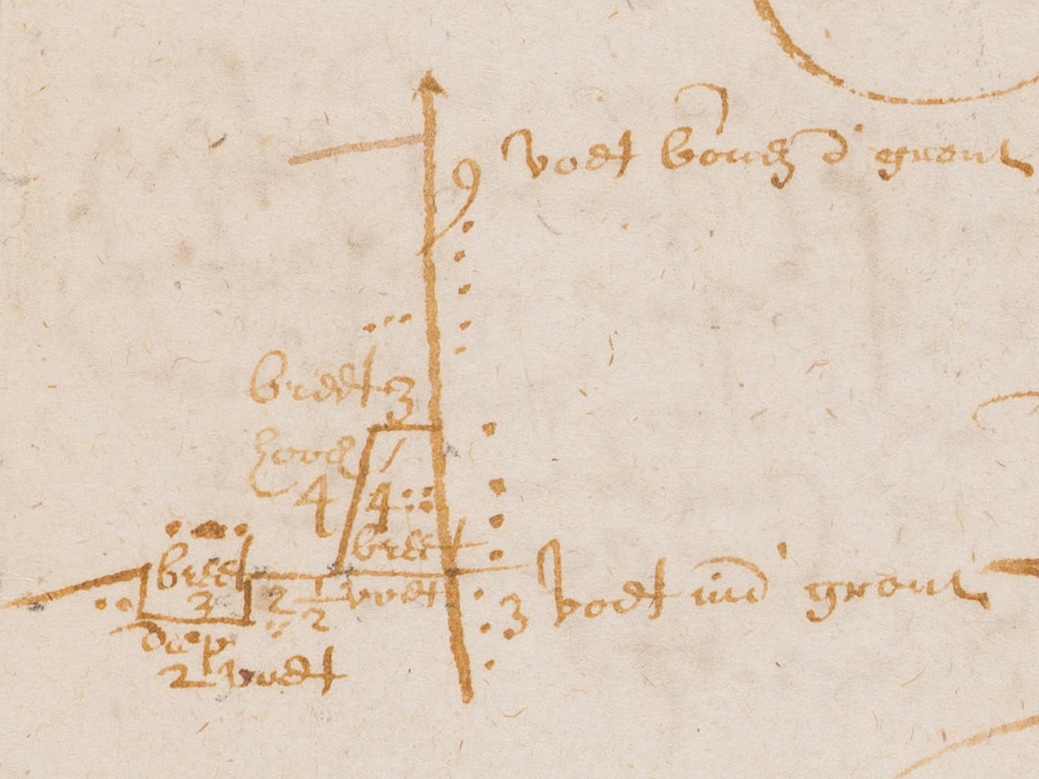 9 voet boven d' gront
breet 3
hooch
4 4
breet
breet
3
2 2 voet
3 voet in d' gront
diep
2 voet